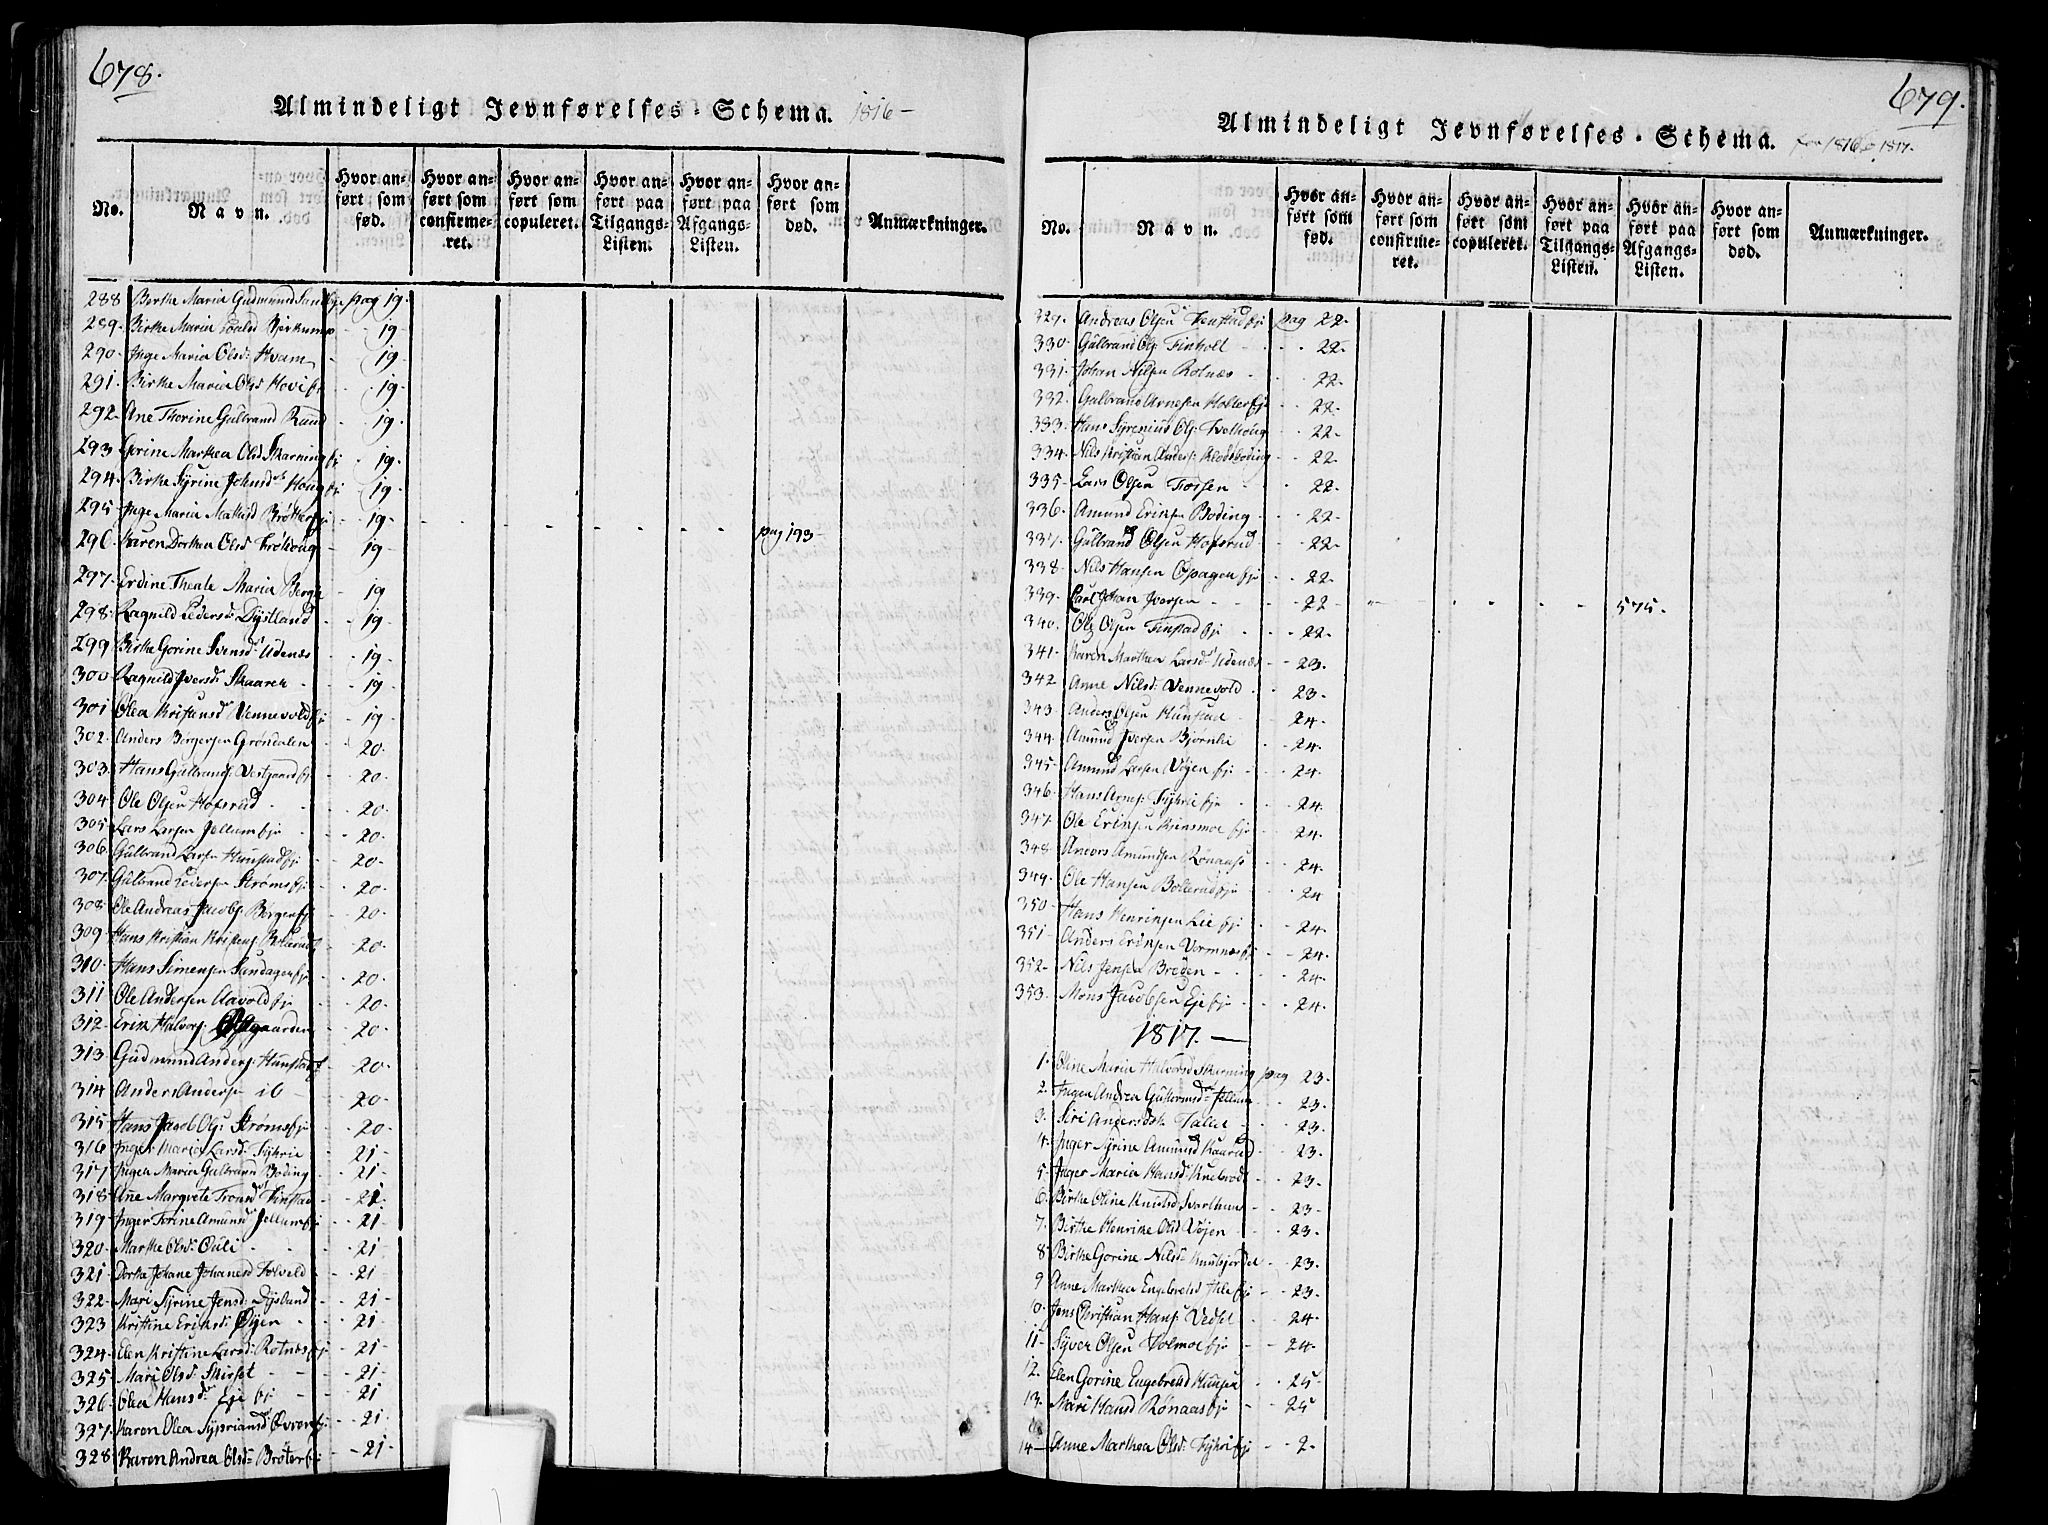 678.
Almindeligt Jevnførelses-Schema. 1816-
No.
Navn.
Hvor anført som fød.
Hvor anført som confirmeret.
Hvor anført som copuleret.
Hvor anført paa Tilgangs-Listen.
Hvor anført paa Afgangs-Listen.
Hvor anført som død.
Anmærkninger.
288 Birthe Maria Gudmund pag 19.
289. Birthe Maria 19
290. Inge Maria Olsd: Hvam 19
291. Birthe Maria Olsd Hovi 19
292. Ane Thorine Gulbrand Ruud 19
293 Gorine Marthea Olsd Skarning 19
294. Birthe Syrine Johnsd Houg 19
295. Inge Maria Mathisd 19
296. Karen Dorthea Olsd 19 pag 193
297. Erdine Theale Maria Berg 19
298. Ragnild Pedersd: Dystland 19
299 Birthe Gorine Svensd: Udenæs 19
300 Ragnild Iversd: Skaarer 19
301 Olea Kristensd Vennevold 19
302. Anders Børgersen Grøndalen 20.
303. Hans Gulbrands: Vestgaard 20.
304 Ole Olsen Hofsrud 20
305 Lars Larsen Jellum 20.
306 Gulbrand Larsen Hunstad 20
307. Gulbrand Pedersen Strøms 20.
308 Ole Andreas Jacobs: Børgen 20.
309 Hans Kristian Kristens Bollerud 20.
310 Hans Simensen Sundagen 20.
311 Ole Andersen Aavold 20
312. Erik Halvors: Østgaarden 20
313 Gudmund Anders: Hunstad 20.
314 Anders Andersen 20
315 Hans Jacob Ols: Strøms 20
316 Inger Maria Larsd: Fyhrie 21
317 Ingea Maria Gulbrand Boding 21
318 Ane Margrete Trond Finstad 21
319. Inger Torine Amund Jellum 21
320. Marthe Olsd: Ouli 21
321 Dorthe Johane Johanesd 21
322. Mari Syrine Jensd: Dysland 21
323 Kristine Eriksd: Øyen 21
324. Elen Kristine Larsd: Rotnes 21
325 Mari Olsd: Skirfst 21
326 Olea Hansd: Eje 21
327. Karen Olea 21
328 Karen Andrea Olsd: Brøter 21
679.
Almindeligt Jevnførelses-Schema. for 1816 1817.
No.
Navn.
Hvor anført som fød.
Hvor anført som confirmeret.
Hvor anført som copuleret.
Hvor anført paa Tilgangs-Listen.
Hvor anført paa Afgangs-Listen.
Hvor anført som død.
Anmærkninger.
329. Andreas Olsen Finstad pag 22.
330 Gulbrand Ols: Finholt 22.
331. Johan Nilsen Rotnæs 22.
332. Gulbrand Arnesen Holter 22.
333. Hans Syrenius Ols: 22.
334. Nils Kristian Anders: 22.
335- Lars Olsen Fossen 22.
336. Amund Eriksen Boding 22.
337. Gulbrand Olsen Hofsrud 22.
338. Nils Hansen Opagen 22.
339. Carl Johan Iversen 22 575.
340. Ole Olsen Finstad 22.
341. Karen Marthea Larsd: Udenæs 23.
342 Anne Nilsd: Vennevold 23.
343 Anders Olsen Hunstad 24.
344. Amund Iversen Bjørnlie 24.
345. Amund Larsen Vøyen 24.
346. Hans Arnes: Fyhrie 24.
347. Ole Eriksen Kjensmoe 24.
348. Anders Amundsen Rønaas 24.
349. Ole Hansen Bollerud 24
350. Hans Henriksen Lie 24.
351. Anders Eriksen Vormnæs 24.
352- Nils Jensen Breden 24
353. Mons Jacobsen Eje 24.
1817.
1. Oline Maria Halvorsd Skarning pag 23.
2. Ingea Andrea Guttormsd: Jellum 23.
3. Siri Andersdt: 23.
4. Inger Syrine Amund Kaarud 23.
5. Inger Maria Hansd: 23.
6. Birthe Oline Knudsd 23.
7. Birthe Henrike Olsd Vøjen 23.
8 Birthe Gorine Nilsd: 23.
9 Anne Marthea Engebretsd 23.
10. Jens Christian Hans: Vedst 24.
11- Syver Olsen Holmoe 24.
12. Elen Gorine Engebretsd 25
13. Mari Hansd Rønaas 25
14- Anne Marthea Olsd: Fyhri 2.